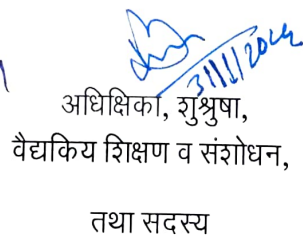 अधिक्षिका, शुश्रुषा,
वैद्यकिय शिक्षण व संशोधन,
तथा सदस्य